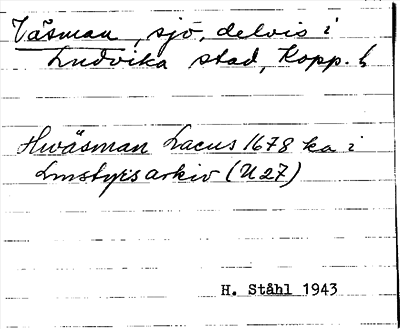 Väsman, sjö, delvis i
Ludvika stad, Kopp. l
Hwäsman Lacus 1678 ka i
Lmstyrs arkiv (U 27)
H. Ståhl 1943